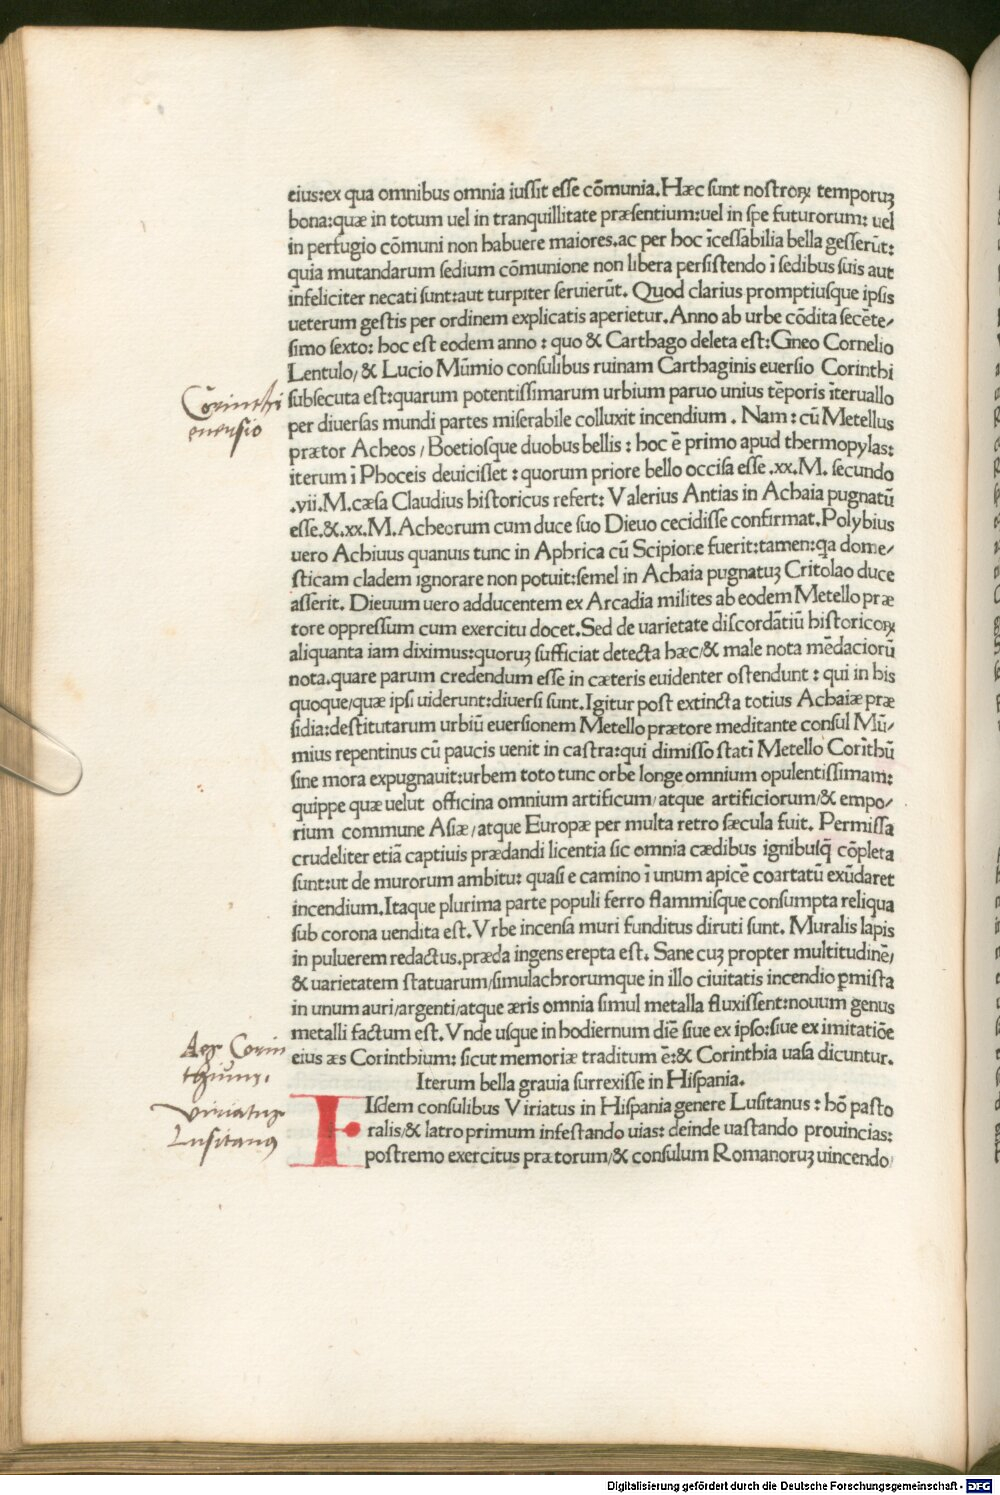 eius:ex qua omnibus omnia iuſſit eſſe cōmunia.Hæc ſunt noſtroꝝ temporuꝫ
bona:quæ in totum uel in tranquillitate præſentium:uel in ſpe futurorum: uel
in perfugio cōmuni non habuere maiores,ac per hoc īceſſabilia bella geſſerūt:
quia mutandarum ſedium cōmunione non libera perſiſtendo ī ſedibus ſuis aut
infeliciter necati ſunt:aut turpiter ſeruierūt. Quod clarius promptiuſque ipſis
ueterum geſtis per ordinem explicatis aperietur.Anno ab urbe cōdita ſecēte/
ſimo ſexto: hoc eſt eodem anno : quo & Carthago deleta eſt:Gneo Cornelio
Lentulo/& Lucio Mūmio conſulibus ruinam Carthaginis euerſio Corinthi
ſubſecuta eſt:quarum potentiſſimarum urbium paruo unius tēporis īteruallo
per diuerſas mundi partes miſerabile colluxit incendium . Nam : cū Metellus
prætor Acheos / Boetioſque duobus bellis : hoc ē primo apud thermopylas:
iterum ī Phoceis deuiciſſet : quorum priore bello occiſa eſſe .xx.M. ſecundo
.vii.M.cæſa Claudius hiſtoricus refert: Valerius Antias in Achaia pugnatū
eſſe.&.xx.M.Acheorum cum duce ſuo Dieuo cecidiſſe confirmat.Polybius
uero Achiuus quanuis tunc in Aphrica cū Scipione fuerit:tamen:qa dome/
ſticam cladem ignorare non potuit:ſemel in Achaia pugnatuꝫ Critolao duce
aſſerit. Dieuum uero adducentem ex Arcadia milites ab eodem Metello præ
tore oppreſſum cum exercitu docet.Sed de uarietate diſcordātiū hiſtoricoꝝ
aliquanta iam diximus:quoruꝫ ſufficiat detecta hæc/& male nota mēdaciorū
nota.quare parum credendum eſſe in cæteris euidenter oſtendunt : qui in his
quoque/quæ ipſi uiderunt:diuerſi ſunt.Igitur poſt extincta totius Achaiæ præ
ſidia:deſtitutarum urbiū euerſionem Metello prætore meditante conſul Mū/
mius repentinus cū paucis uenit in caſtra:qui dimiſſo ſtatī Metello Corīthū
ſine mora expugnauit:urbem toto tunc orbe longe omnium opulentiſſimam:
quippe quæ uelut officina omnium artificum/atque artificiorum/& empo/
rium commune Aſiæ/atque Europæ per multa retro ſæcula fuit. Permiſſa
crudeliter etiā captiuis prædandi licentia ſic omnia cædibus ignibuſq̄ cōpleta
ſunt:ut de murorum ambitu: quaſi e camino ī unum apicē coartatū exūdaret
incendium.Itaque plurima parte populi ferro flammiſque conſumpta reliqua
ſub corona uendita eſt.Vrbe incenſa muri funditus diruti ſunt. Muralis lapis
in puluerem redactus.præda ingens erepta eſt. Sane cuꝫ propter multitudinē/
& uarietatem ſtatuarum/ſimulachrorumque in illo ciuitatis incendio ꝑmiſta
in unum auri/argenti/atque æris omnia ſimul metalla fluxiſſent:nouum genus
metalli factum eſt. Vnde uſque in hodiernum diē ſiue ex ipſo:ſiue ex imitatiōe
eius æs Corinthium: ſicut memoriæ traditum ē:& Corinthia uaſa dicuntur.
Iterum bella grauia ſurrexiſſe in Hiſpania.
IISdem conſulibus Viriatus in Hiſpania genere Luſitanus : hō paſto
ralis/& latro primum infeſtando uias: deinde uaſtando prouincias:
poſtremo exercitus prætorum/& conſulum Romanoruꝫ uincendo/
Cōrinthi
euersio
Aes Corin
thium.
Viriatus
Lusitanus
Digitalisierung gefördert durch die Deutsche Forschungsgemeinschaft - DFG